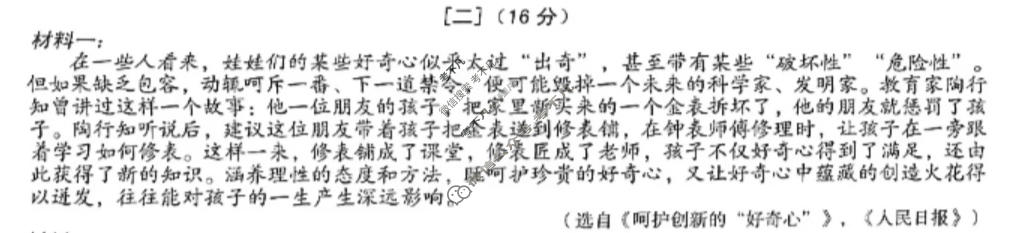 [二]（16分）
材料一：
在一些人看来，娃娃们的某些好奇心似乎太过“出奇”，甚至带有某些“破坏性”“危险性”。
但如果缺乏包容，动辄呵斥一番、下一道禁令，便可能毁掉一个未来的科学家、发明家。教育家陶行
知曾讲过这样一个故事：他一位朋友的孩子，把家里新买来的一个金表拆坏了，他的朋友就惩罚了孩
子。陶行知听说后，建议这位朋友带着孩子把金表送到修表铺，在钟表师傅修理时，让孩子在一旁跟
着学习如何修表。这样一来，修表铺成了课堂，修表匠成了老师，孩子不仅好奇心得到了满足，还由
此获得了新的知识。涵养理性的态度和方法，既呵护珍贵的好奇心，又让好奇心中蕴藏的创造火花得
以迸发，往往能对孩子的一生产生深远影响。
（选自《呵护创新的“好奇心”》，《人民日报》）